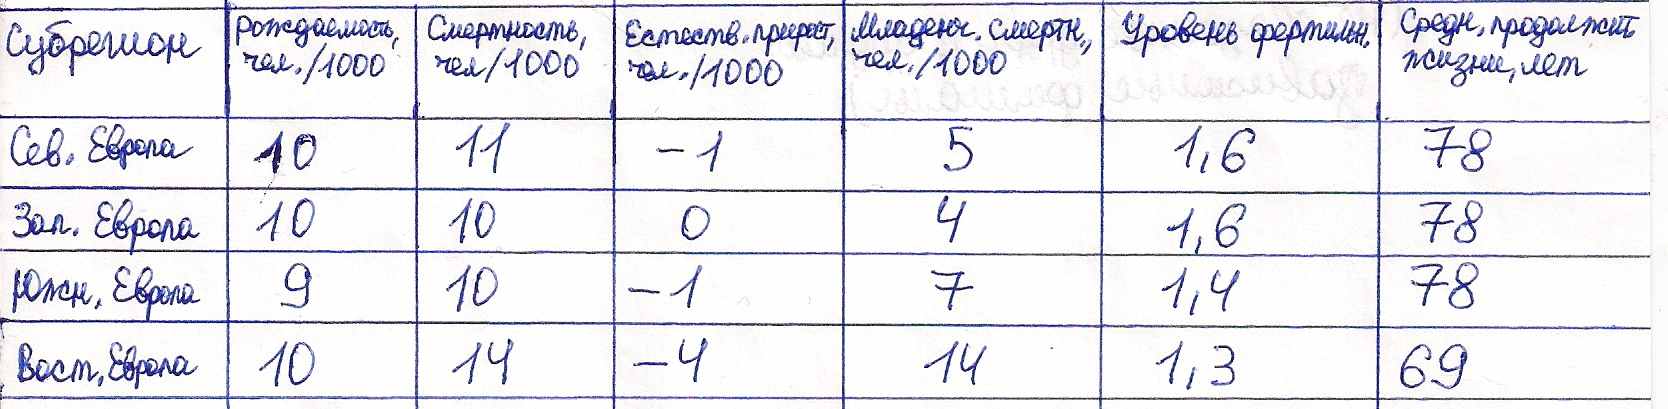 Субрегион | Рождаемость, чел./1000 | Смертность, чел/1000 | Естеств. прирост, чел./1000 | Младенч. смертн., чел./1000 | Уровень фертильн. | Средн. продолжит. жизни, лет
Сев. Европа | 10 | 11 | -1 | 5 | 1,6 | 78
Зап. Европа | 10 | 10 | 0 | 4 | 1,6 | 78
Южн. Европа | 9 | 10 | -1 | 7 | 1,4 | 78
Вост. Европа | 10 | 14 | -4 | 14 | 1,3 | 69